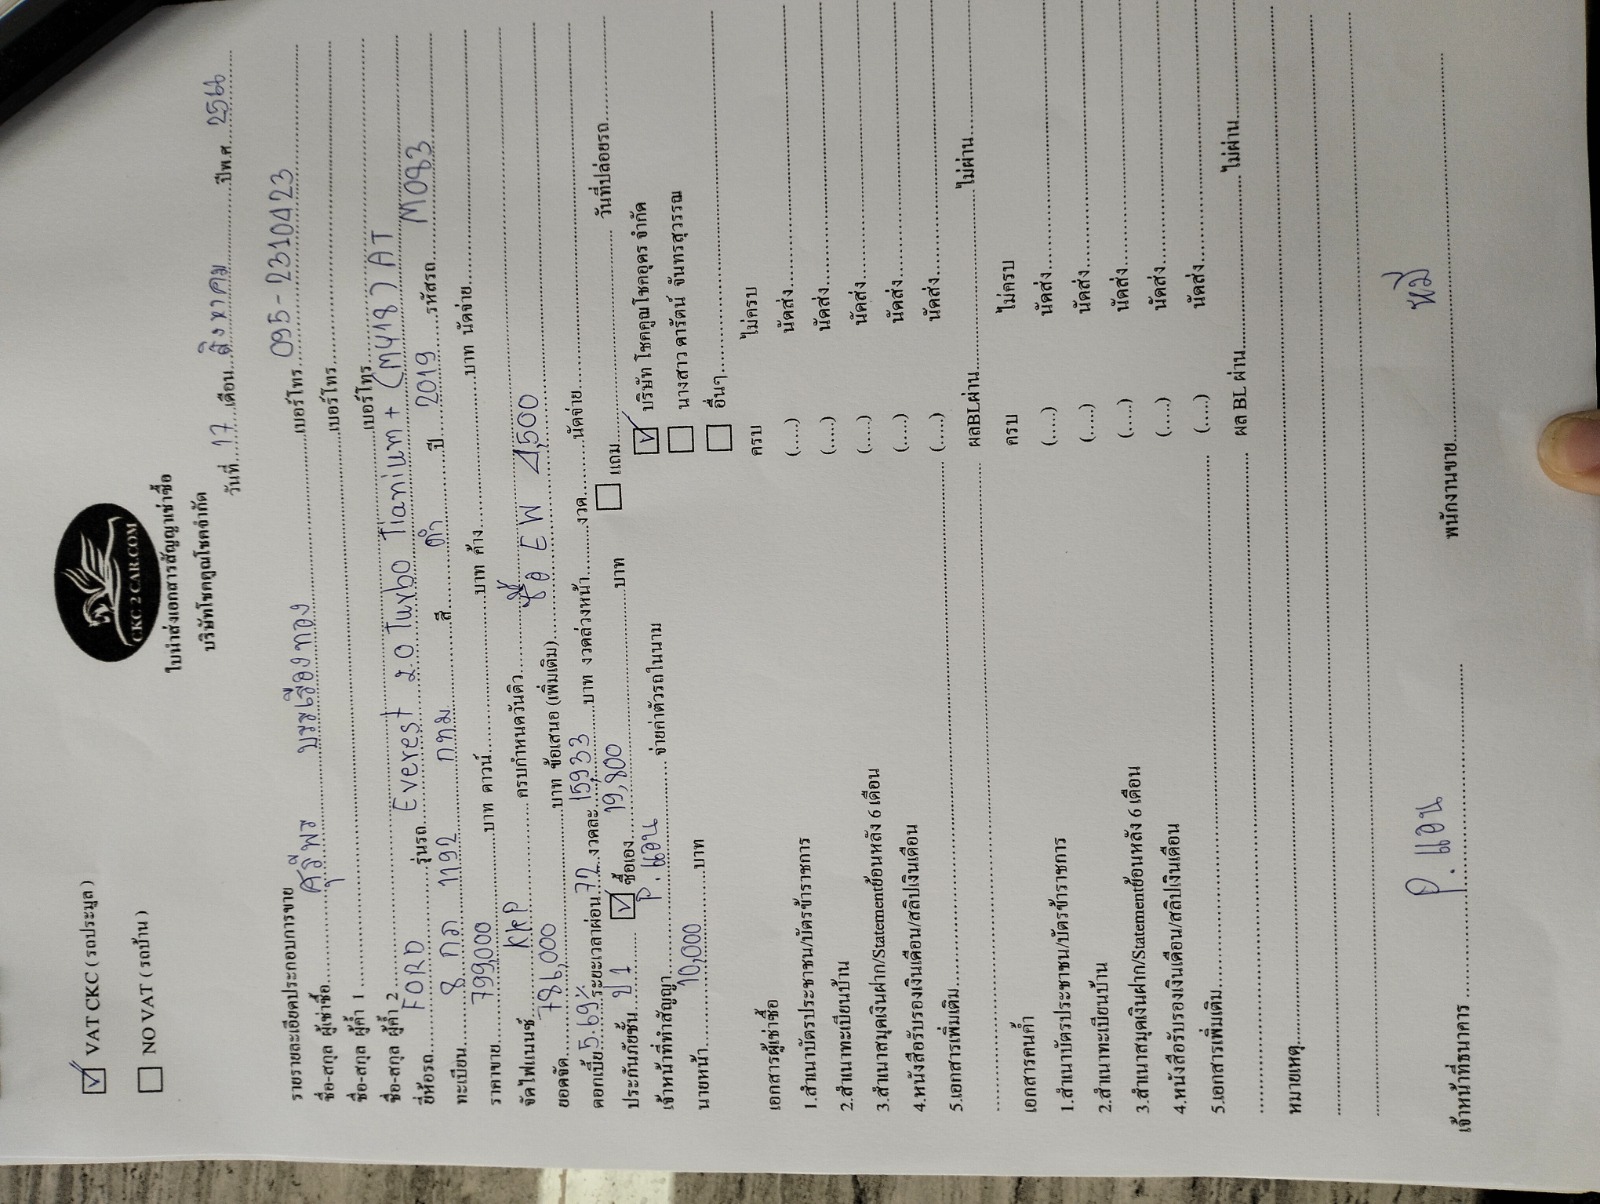 ☑ VAT CKC ( รถประมูล )
☐ NO VAT ( รถบ้าน )
CKC 2 CAR.COM
ใบนำส่งเอกสารสัญญาเช่าซื้อ
บริษัทโชคคูณโชคจำกัด
วันที่ 17 เดือน สิงหาคม ปีพ.ศ. 2566
รายรายละเอียดประกอบการขาย
ชื่อ-สกุล ผู้เช่าซื้อ เบอร์โทร 095-2310423
ชื่อ-สกุล ผู้ค้ำ 1 เบอร์โทร
ชื่อ-สกุล ผู้ค้ำ 2 เบอร์โทร
ยี่ห้อรถ FORD รุ่นรถ Everest 2.0 Turbo Tianium+ (MY18) AT
ทะเบียน 8 กว 1192 กทม สี ดำ ปี 2019 รหัสรถ M083
ราคาขาย 799,000 บาท ดาวน์ บาท ค้าง บาท นัดจ่าย
จัดไฟแนนซ์ KKP ครบกำหนดวันดิว
ยอดจัด 786,000 บาท ข้อเสนอ (เพิ่มเติม) ซื้อ EW 4,500
ดอกเบี้ย 5.69% ระยะเวลาผ่อน 72 งวดละ 15,933 บาท งวดล่วงหน้า งวด นัดจ่าย
ประกันภัยชั้น ป1 ☑ ซื้อเอง 19,800 บาท ☐ แถม วันที่ปล่อยรถ
เจ้าหน้าที่ทำสัญญา P.แอน จ่ายค่าตัวรถในนาม ☑ บริษัท โชคคูณโชคอุดร จำกัด
นายหน้า 10,000 บาท ☐ นางสาว ดารัตน์ จันทรสุวรรณ
☐ อื่นๆ
เอกสารผู้เช่าซื้อ ครบ ไม่ครบ
1.สำเนาบัตรประชาชน/บัตรข้าราชการ (.....) นัดส่ง
2.สำเนาทะเบียนบ้าน (.....) นัดส่ง
3.สำเนาสมุดเงินฝาก/Statementย้อนหลัง 6 เดือน (.....) นัดส่ง
4.หนังสือรับรองเงินเดือน/สลิปเงินเดือน (.....) นัดส่ง
5.เอกสารเพิ่มเติม (.....) นัดส่ง
ผลBLผ่าน ไม่ผ่าน
เอกสารคนค้ำ ครบ ไม่ครบ
1.สำเนาบัตรประชาชน/บัตรข้าราชการ (.....) นัดส่ง
2.สำเนาทะเบียนบ้าน (.....) นัดส่ง
3.สำเนาสมุดเงินฝาก/Statementย้อนหลัง 6 เดือน (.....) นัดส่ง
4.หนังสือรับรองเงินเดือน/สลิปเงินเดือน (.....) นัดส่ง
5.เอกสารเพิ่มเติม (.....) นัดส่ง
ผล BL ผ่าน ไม่ผ่าน
หมายเหตุ
เจ้าหน้าที่ธนาคาร P.แอน พนักงานขาย